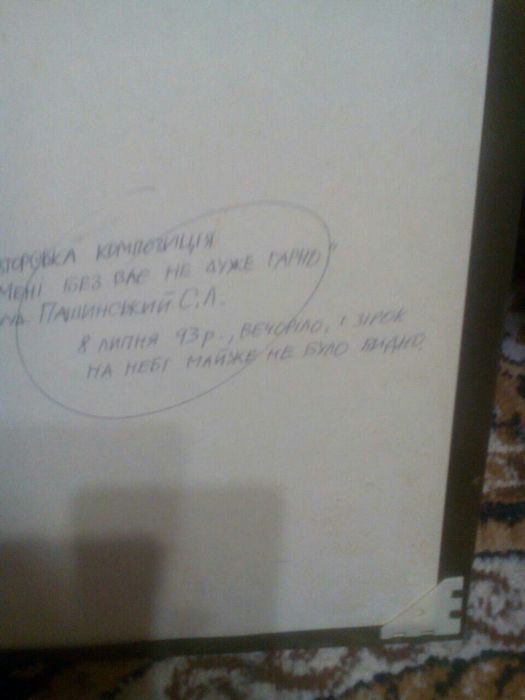 АВТОРСЬКА КОМПОЗИЦІЯ
МЕНІ БЕЗ ВАС НЕ ДУЖЕ ГАРНО"
ПАШИНСЬКИЙ С.Л.
8 ЛИПНЯ 93 р., ВЕЧОРІЛО, І ЗІРОК
НА НЕБІ МАЙЖЕ НЕ БУЛО ВИДНО.